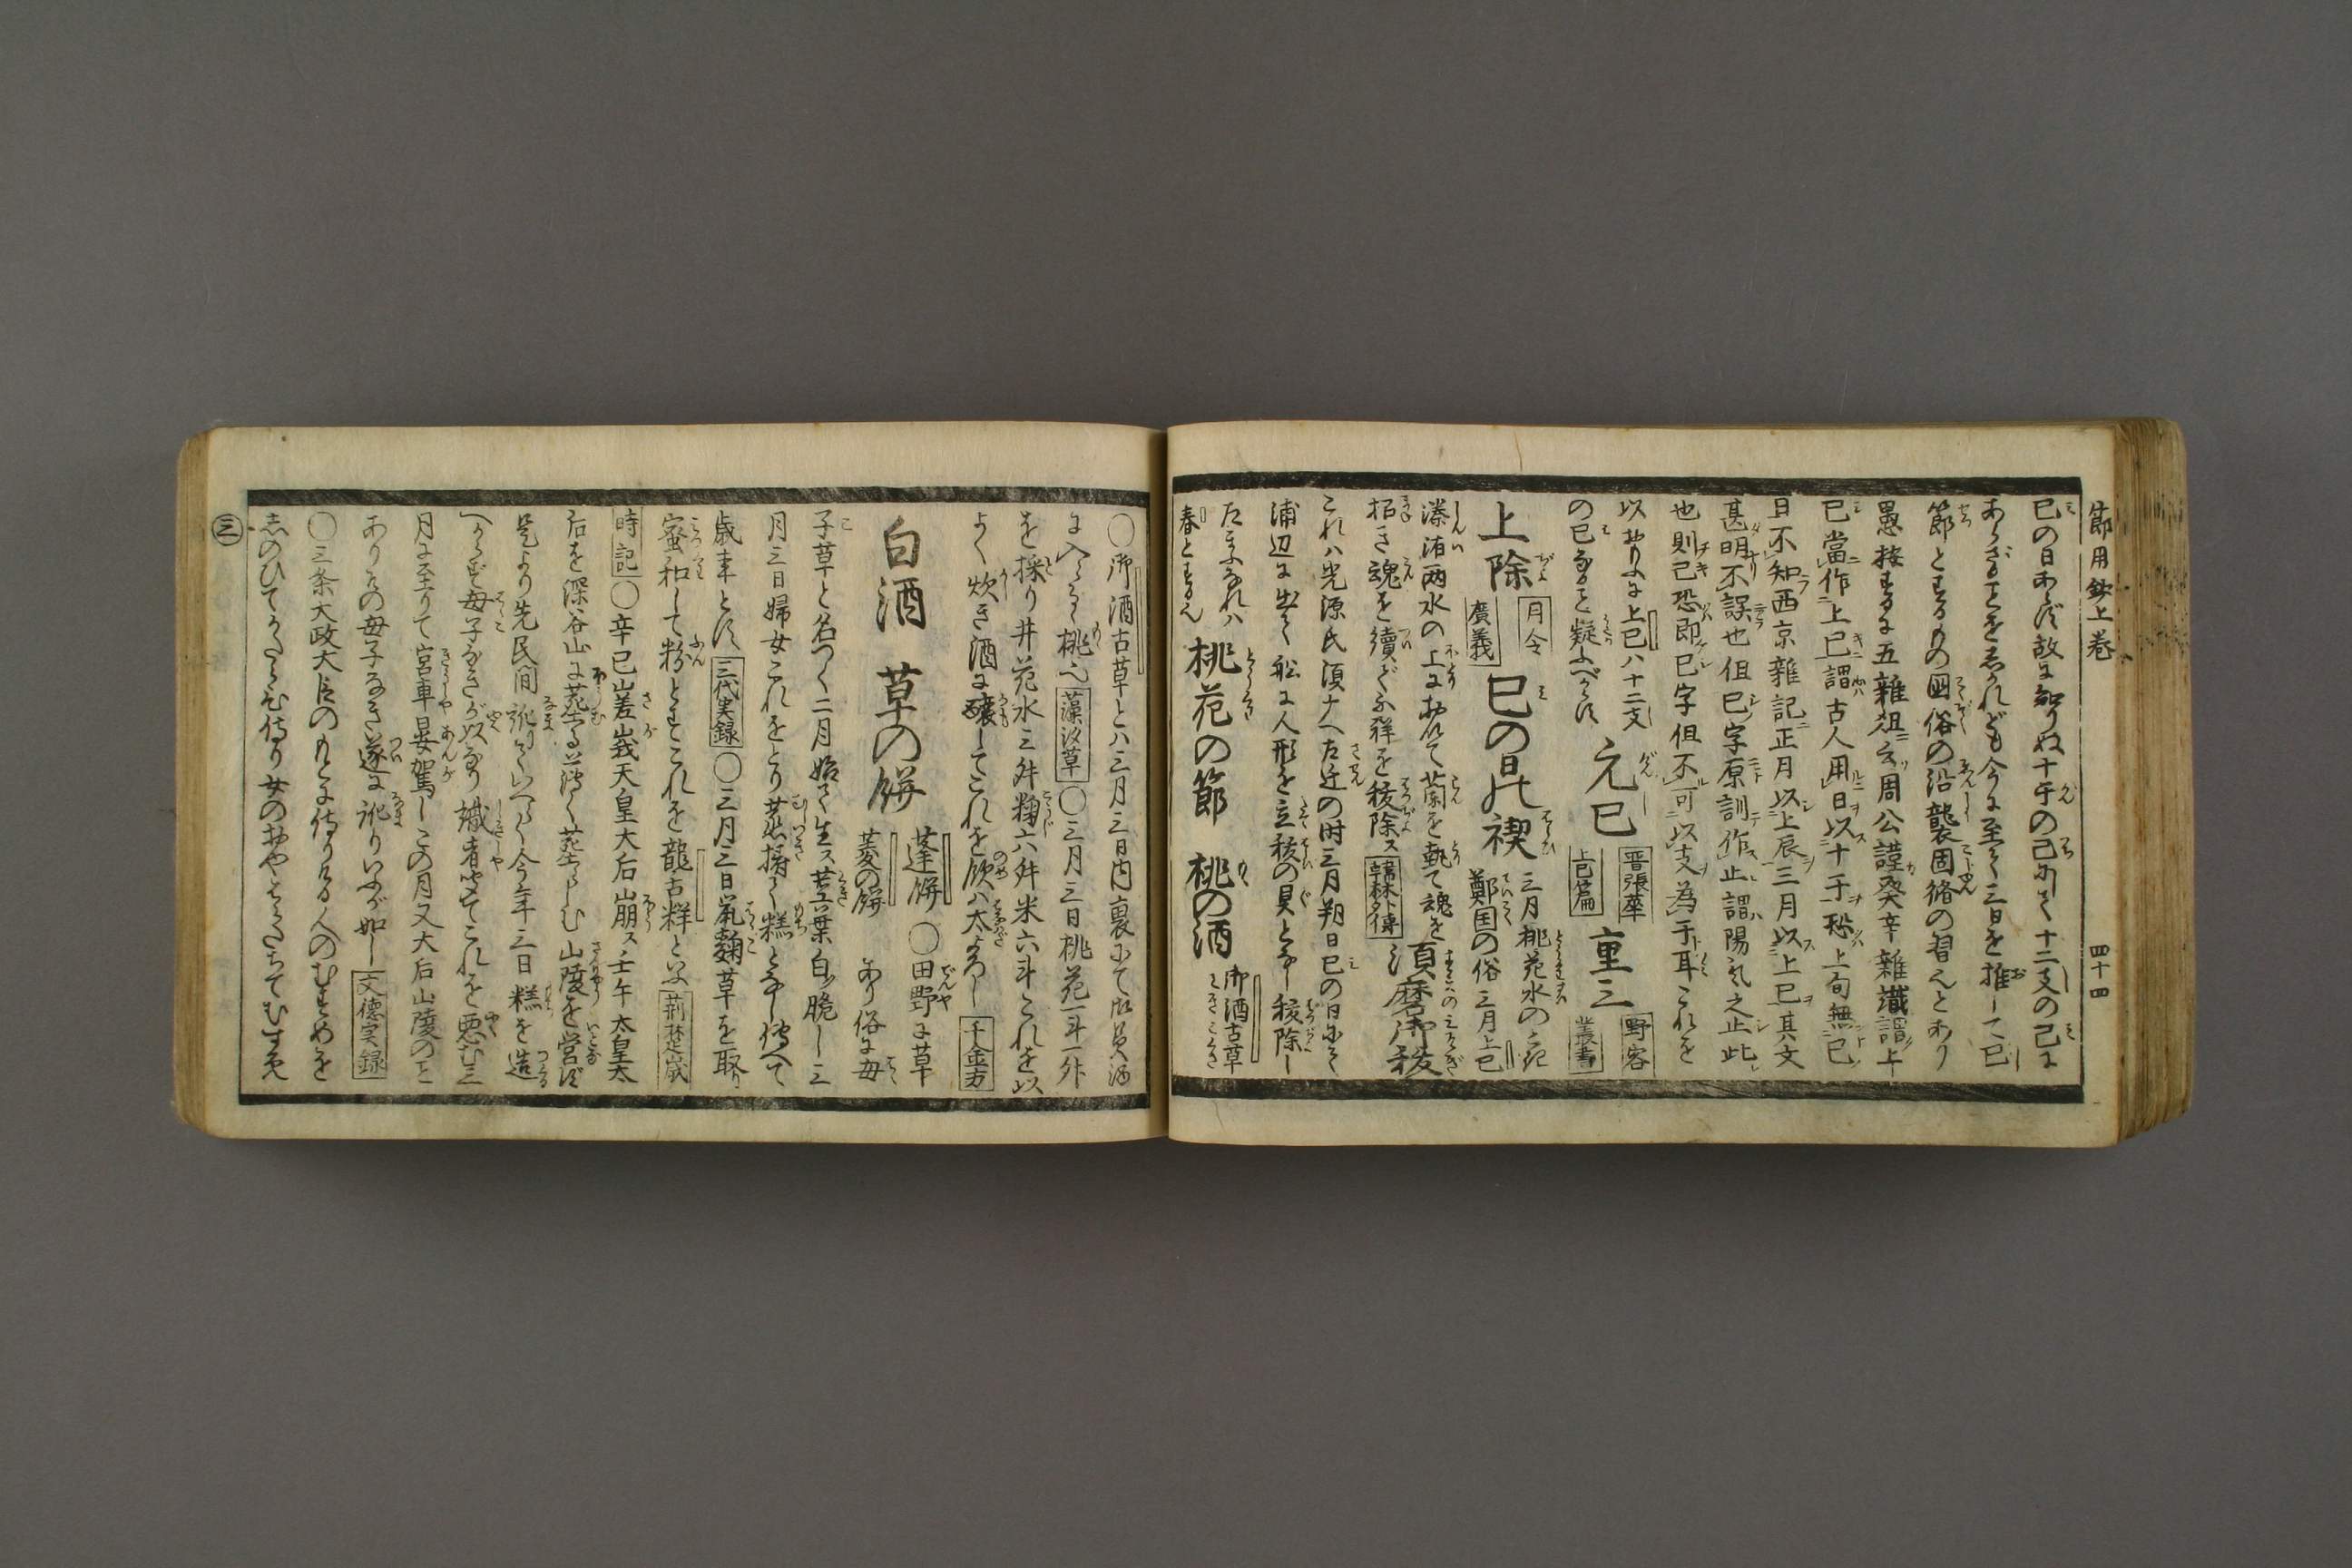 節用鈔上巻
四十四
巳の日あらば故に知りぬ十干の己にして十二支の巳に
あらざることをあれども今に至て三日を推して巳
節とするもの国俗の沿襲固循の習んとあり
愚按するに五雜俎云周公謹癸辛雜識謂上
巳當作上己謂古人用日以十干恐上旬無巳
日不知西京雜記正月以上辰三月以上巳其文
甚明不誤也但巳字原訓作止謂陽氣之止此
也則己恐即巳字但不可以支為干耳これを
以おりふに上巳ハ十二支
の巳なること疑ふべからず
元巳
晋張華
上巳篇
重三
野客
叢書
上除
月令
廣義
巳の日の禊
三月桃花水の
鄭国の俗三月上巳
溱洧両水の上におゐて蘭を執て魂を
招き魂を續ぐ不祥を祓除ス
韓詩外傳
須磨御祓
これハ光源氏須ナへ左迁の時三月朔日巳の日にて
浦辺に出て舩に人形を立祓の具となし祓除し
たまふなれハ
御酒古草
春とするん
桃花の節
桃の酒
〇御酒古草とハ三月三日内裏にて
に入らるゝ桃也
藻汐草
〇三月三日桃花一斗一升
を採り井花水三升麹六升米六斗これを以
よく炊き酒に醸してこれを飲ハ太よろし
千金方
白酒
草の餅
蓬餅
菱の餅
〇田野に草
あり俗に母
子草と名つく二月始て生ス莖葉白ッ脆し三
月三日婦女これをとり蒸搗て糕となし傳へて
歳事とす
三代実録
〇三月三日鼠麹草を取り
蜜和して粉とすこれを龍舌䉽といふ
荊楚歳
時記
〇辛巳嵯峩天皇大后崩ス壬午太皇太
后を深谷山に葬る薄く葬らしむ山陵を営ず
是より先民間訛りていへらく今年三日糕を造
へからず母子なきが以なり識者聞てこれを悪む三
月に至りて宮車晏駕しこの月又大后山陵のこと
ありその母子なき遂に訛りいふが如し
文徳実録
〇三条大政大臣のもとに侍りける人のむすめを
志のひてかたらひ侍り女のおやはらたちてむすめ
三